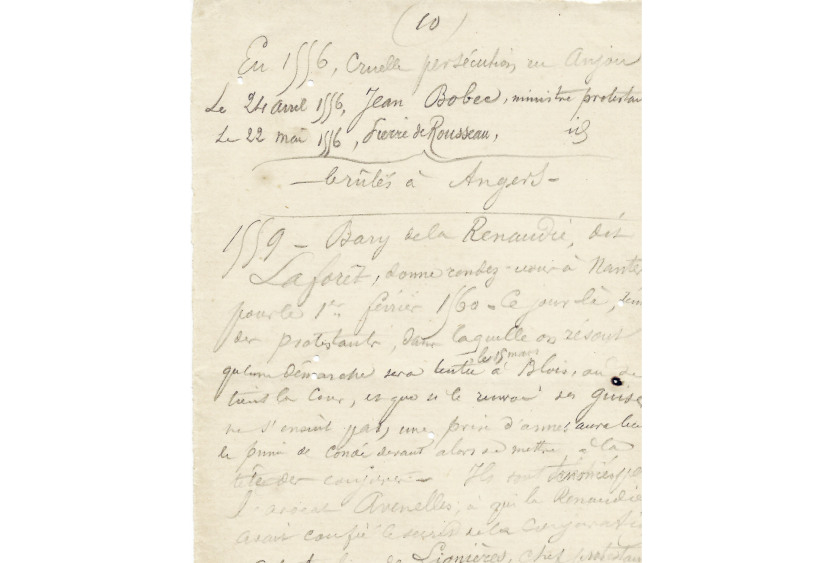 (10)
En 1556, Cruelle persécution en Anjou
Le 24 avril 1556, Jean Bobec, ministre protestan
Le 22 mai 1556, Pierre de Rousseau, id
brûlés à Angers
1559 - Bary de la Renaudie, dit
Laforêt, donne rendez-vous à Nantes
pour le 1er février 1560 - Ce jour là,
des protestants, dans laquelle on résout
le 15 mars
qu'une démarche sera tentée à Blois, où se
tient la Cour, et que si le renvoi des Guise
ne s'ensuit pas, une prise d'armes aura lieu
le prince de Condé devant alors se mettre à la
tête des conjurés - Ils sont
l'avocat Avenelles, à qui la Renaudie
avait confié le secret de la Conjuratio
Lignières, chef protestan